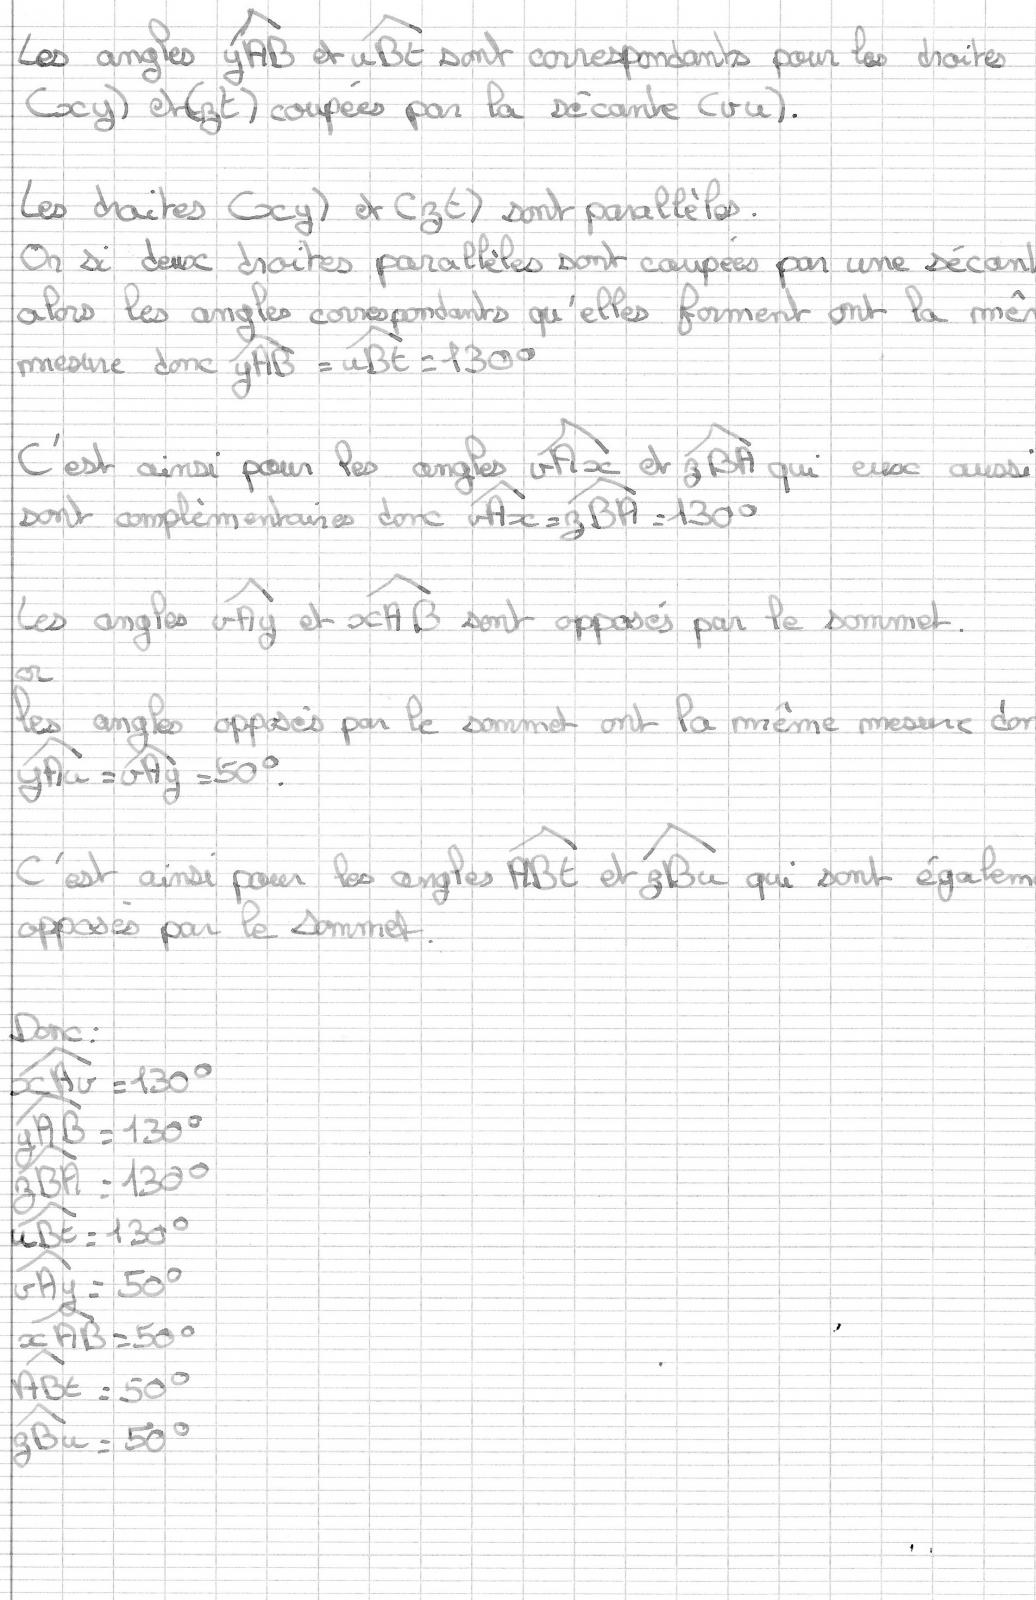 Les angles yAB et uBt sont correspondants pour les droites
(xy) et (zt) coupées par la sécante (vu).
Les droites (xy) et (zt) sont parallèles.
Or si deux droites parallèles sont coupées par une sécant
alors les angles correspondants qu'elles forment ont la mêm
mesure donc yAB = uBt = 130°
C'est ainsi pour les angles vAx et zBA qui eux aussi
sont complémentaires donc vAx = zBA = 130°
Les angles vAy et xAB sont opposés par le sommet.
or
les angles opposés par le sommet ont la même mesure don
yAu = vAy = 50°.
C'est ainsi pour les angles ABt et zBu qui sont égalem
opposés par le sommet.
Donc :
xAv = 130°
yAB = 130°
zBA = 130°
uBt = 130°
vAy = 50°
xAB = 50°
ABt = 50°
zBu = 50°